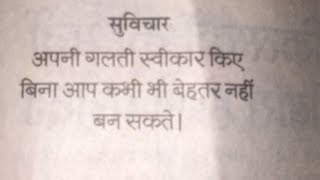 सुविचार
अपनी गलती स्वीकार किए
बिना आप कभी भी बेहतर नहीं
बन सकते।